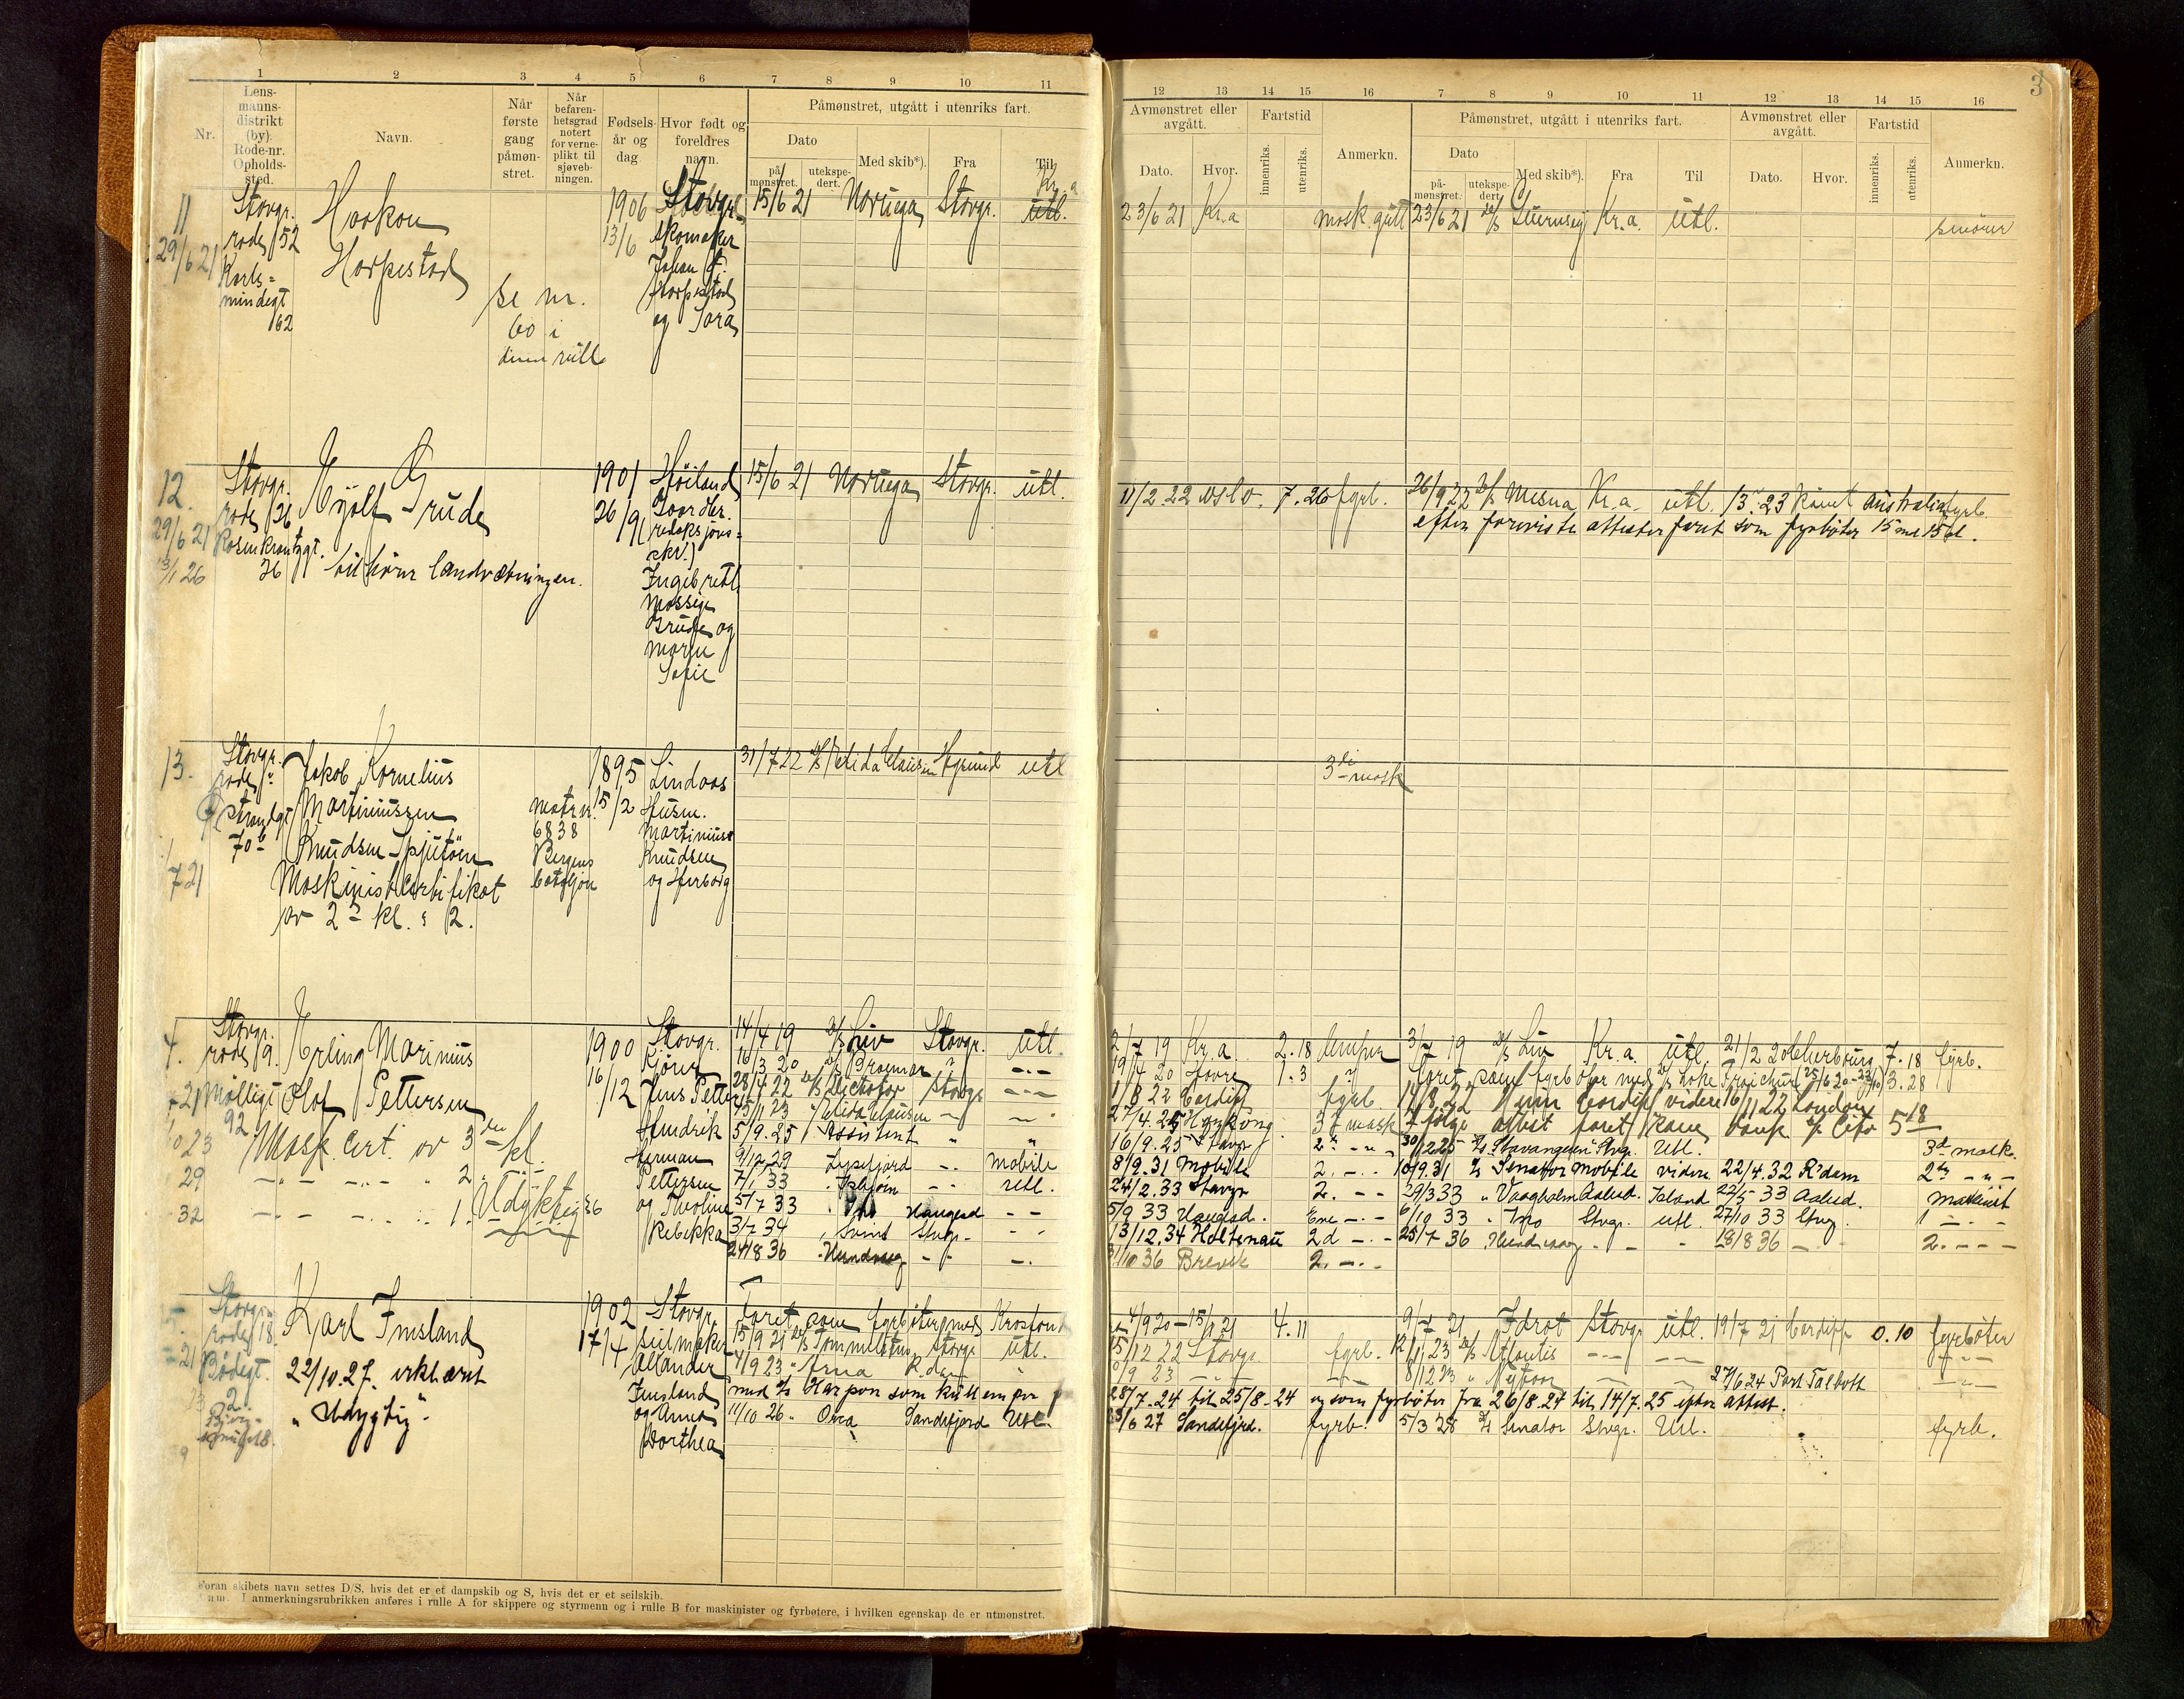 1 2 3 4 5 6 7 8 9 10 11
Nr.
Lens-
manns-
distrikt
(by).
Rode-nr.
Opholds-
sted.
Navn.
Når
første
gang
påmøn-
stret.
Når
befaren-
hetsgrad
notert
for verne-
plikt til
sjøveb-
ningen.
Fødsels-
år og
dag
Hvor født og
foreldres
navn.
Påmønstret, utgått i utenriks fart.
Dato
på
mønstret.
utekspe-
dert.
Med skib*).
Fra
Til
12 13 14 15 16 7 8 9 10 11 12 13 14 15 16
3
Avmønstret eller
avgått.
Dato.
Hvor.
Fartstid
innenriks.
utenriks.
Anmerkn.
Påmønstret, utgått i utenriks fart.
Dato
på-
mønstret.
utekspe-
dert.
Med skib*).
Fra
Til
Avmønstret eller
avgått.
Dato.
Hvor.
Fartstid
innenriks.
utenriks.
Anmerkn.
11
29/6 21
Stavgr.
rode 52
Karls=
mindegt
62
Haakon
Harpestad
se nr.
60 i
denne rulle
1906
13/6
Stavgr.
skomaker
Johan
Harpestad
og Sara
15/6 21 Noruega Stavgr. utl.
Kr.a
23/6 21 Kr.a mask.gutt 23/6 21 D/S Kr.a. utl. smører
12.
29/6 21
13/1 26
Stavgr.
rode 26
Rosenkrantzgt.
26
Kjølf Grude
tilhører landvæbningen.
1901
26/9
Høiland
redaksjons=
skr.)
Ingebretl
Mossige
Grude og
Maren
Sofie
15/6 21 Noruega Stavgr. utl.
11/2.22 Oslo. 7.26 fyrb. 26/9 22 D/S Mesna Kr.a. utl. 13. 23 Australia fyrb.
efter foreviste attester faret som fyrbøter 15 md 15 d.
13.
7 21
Stavgr.
rode
Strandgt
70b
Jakob Kornelius
Martiniussen
Knudsen-Spjutøen
Maskinistcertifikat
av 2 kl. 2.
matr.nr.
6838
Bergens
bataljon
1895
15/2
Lindaas
Husm.
Martinius
Knudsen
og Herborg
31/7 22 D/S Elida Clausen Egersund utl
3die mask
4.
21
23
29
32
Stavgr.
rode 9.
Møllegt
92
Erling Marinius
Olaf Pettersen
Mask. Cert. av 3die kl.
-"- -"- 2.
-"- -"- 1. Udyktig 36
1900
16/12
Stavgr.
Kjører
Jens Petter
Hendrik
Herman
Pettersen
og Theoline
Rebekka
14/4 19 D/S Liv Stavgr. utl.
16/3 20 D/S Bragmar " -"-
28/4 22 D/S Stavgr -"-
15/11 23 Elida Clausen -"- -"-
5/9.25 Assistent " "
9/12.29 Lysefjord -"- Mobile
7/1 33 -"- utl.
5/7 33 Haugesd - -
3/7 34 Svint Stvgr. - -
24/8 36 Hundvaag - - -
2/7 19 Kr.a 2.18 lemper 3/7 19 D/S Liv Kr.a. utl. 21/2 20 Cherbourg 7.18 fyrb.
19/4 20 Havre 1.3 " faret som fyrbøter med D/S 3.28
1/8 22 Cardiff fyrb 14/8 22 Cardiff videre 16/11 22 London
27/4.25 Hongkong. 3die mask ifølge attest faret 5 18
16/9.25 Stavgr 2" -"- 30/12 25 D/S Stavangeren Stvgr. Utl. 3d mask.
8/9.31 Mobile 2. -"- 10/9.31 D/S Senator Mobile videre 22/4.32 R'dam 2den -"-
24/2.33 Stavgr 2. -- 29/3 33 " Vaagholm Aalesd. Island 22/5 33 Aalesd. Maskinist
5/9 33 Haugesd. Ene -"- 6/10 33 " Ino Stvgr. utl. 27/10 33 Stvgr. 1 - -
13/12.34 Holtenau 2d -"- 25/7 36 Hundvaag - - 18/8 36 - 2. - -
31/10 36 Brevik 2. -"-
5.
21
23
Stavgr.
rode 18.
Bødegt.
2.
Karl Imsland
22/10.27. erklært
"Udygtig".
1902
17/4
Stavgr.
seilmaker
Allander
Imsland
og Anna
Dorthea
Faret som fyrbøter med Krosfond
15/9 21 D/S Tommeliten Stavgr utl.
4/9 23 " Arna R.dam "
med D/S Harpon som kullemper fra
11/10 26. Orca Sandefjord Utl.
4/9 20 – 15/1 21 4.11 9/7 21 Idrot Stavgr utl. 19/7 21 Cardiff 0.10 fyrbøter
15/12 22 Stavgr. fyrb. 12/1 23 D/S Atlantis -"- -"- -"-
9 23 -"- 8/12 23 " 27/6 24 Port Talbott -"-
28/7.24 til 25/8-24 og som fyrbøter fra 26/8.24 til 14/7.25 efter attest.
/6 27 Sandefjrd. fyrb. 5/3 28 D/S Senator Stvgr. Utl. fyrb.
Foran skibets navn settes D/S, hvis det er et dampskib og S, hvis det er et seilskib.
Anm. I anmerkningsrubrikken anføres i rulle A for skippere og styrmenn og i rulle B for maskinister og fyrbøtere, i hvilken egenskap de er utmønstret.